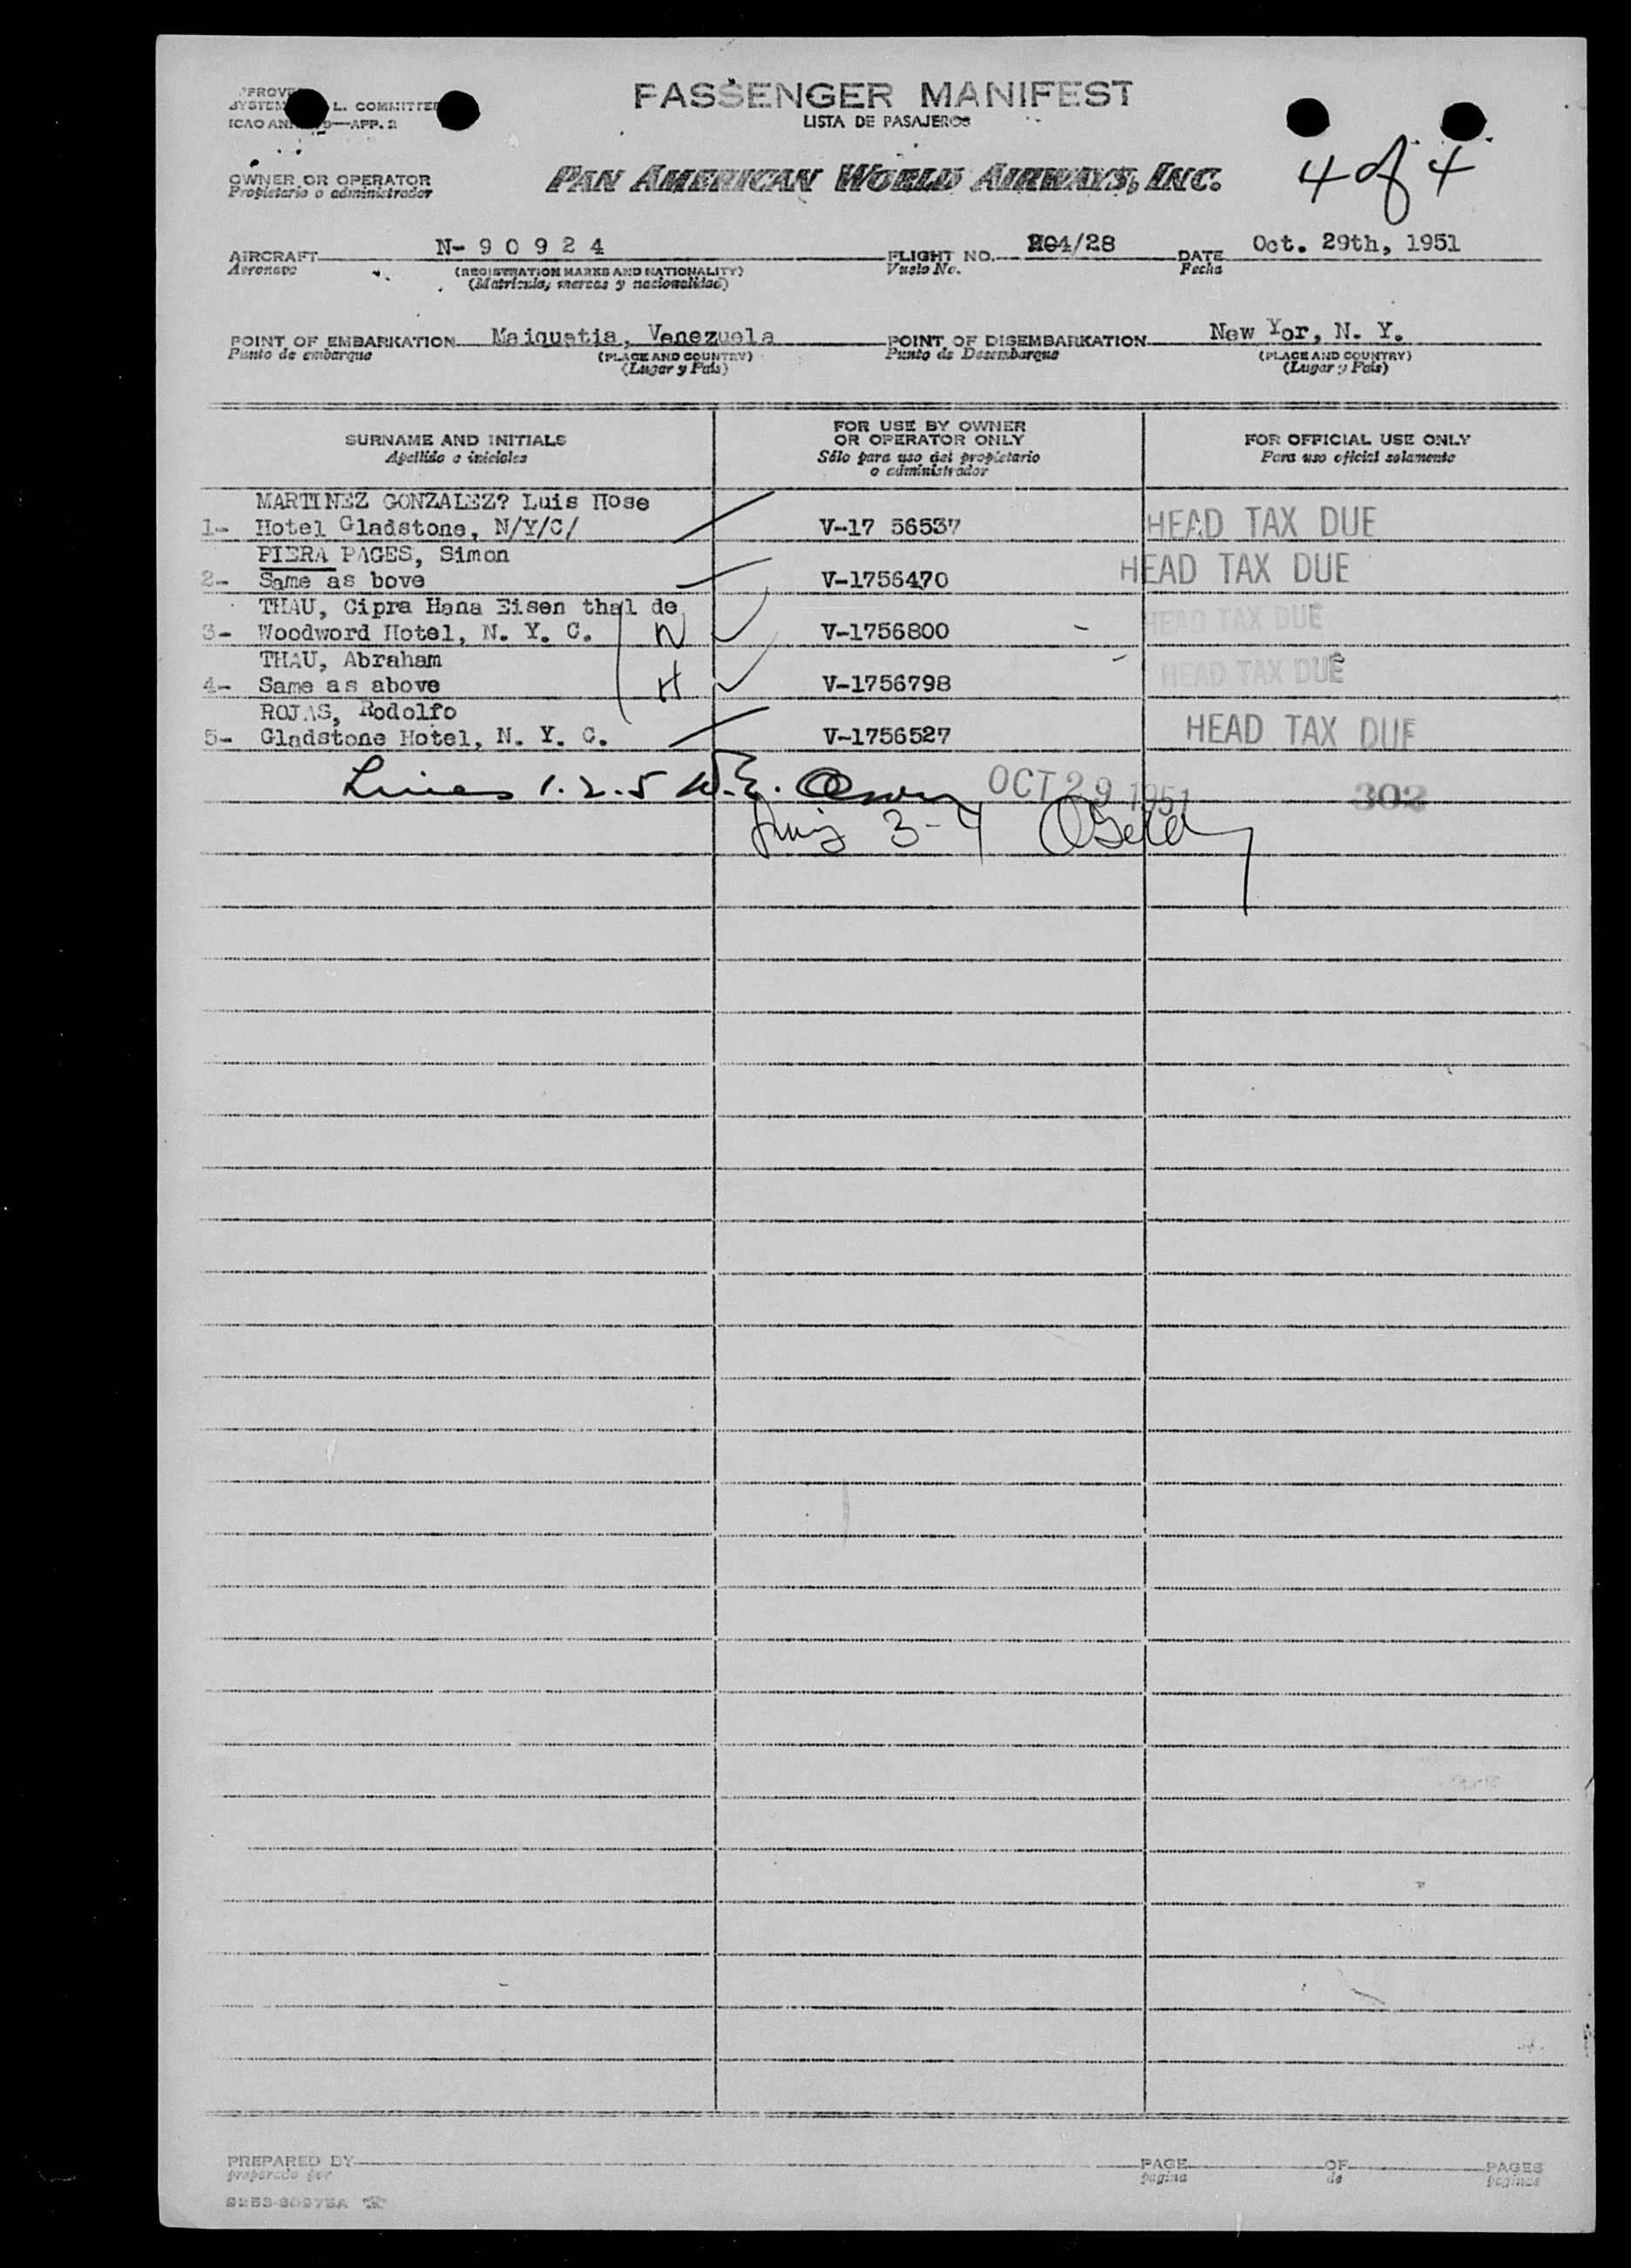 PASSENGER MANIFEST
LISTA DE PASAJEROS
L. COMMITTEE
APP. 2
OWNER OR OPERATOR
Propietario o administrador
PAN AMERICAN WORLD AIRWAYS, INC.
4 of 4
AIRCRAFT N- 9 0 9 2 4 FLIGHT NO. 204/28 DATE Oct. 29th, 1951
Aeronave (REGISTRATION MARKS AND NATIONALITY) Vuelo No. Fecha
(Matrícula, marcas y nacionalidad)
POINT OF EMBARKATION Maiquetia, Venezuela POINT OF DISEMBARKATION New Yor, N. Y.
Punto de embarque (PLACE AND COUNTRY) Punto de Desembarque (PLACE AND COUNTRY)
(Lugar y País) (Lugar y País)
SURNAME AND INITIALS FOR USE BY OWNER OR OPERATOR ONLY FOR OFFICIAL USE ONLY
Apellido e iniciales Sólo para uso del propietario o administrador Para uso oficial solamente
MARTINEZ GONZALEZ? Luis Hose
1- Hotel Gladstone, N/Y/C/ V-17 56537 HEAD TAX DUE
PIERA PAGES, Simon
2- Same as bove V-1756470 HEAD TAX DUE
THAU, Cipra Hana Eisen thal de
3- Woodword Hotel, N. Y. C. N V-1756800 HEAD TAX DUE
THAU, Abraham
4- Same as above H V-1756798 HEAD TAX DUE
ROJAS, Rodolfo
5- Gladstone Hotel, N. Y. C. V-1756527 HEAD TAX DUE
Lines 1.2.5 W.E. OCT 29 1951 302
3-4
PREPARED BY PAGE OF PAGES
preparado por página de páginas